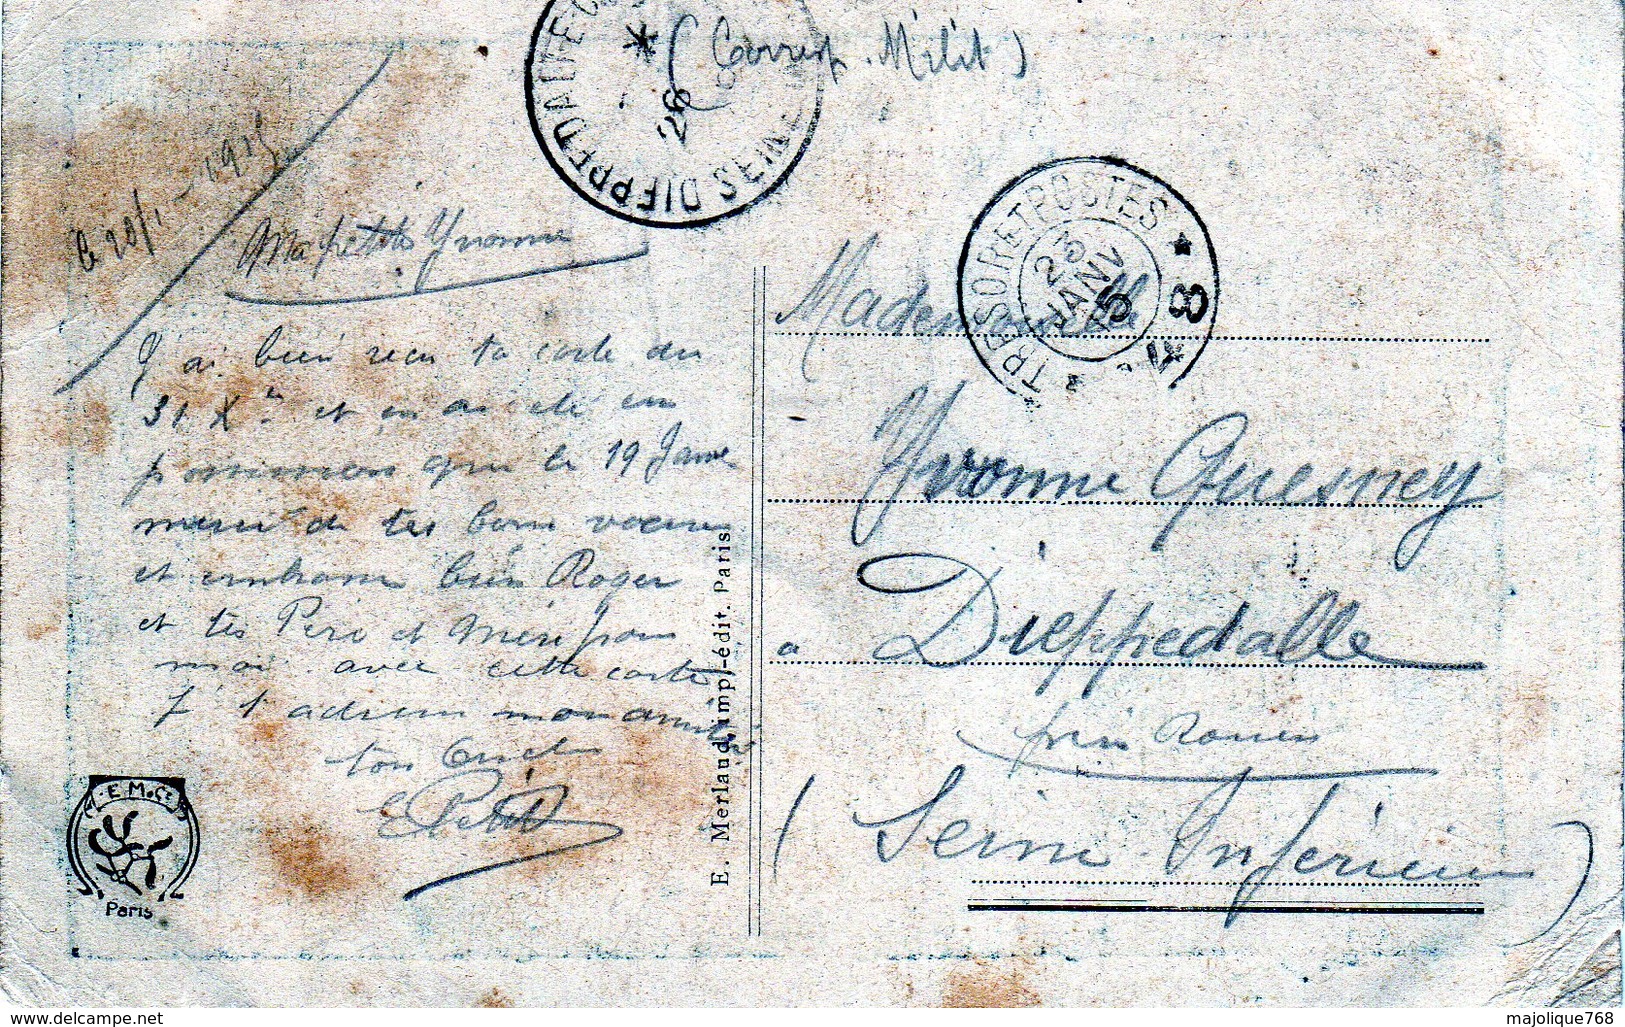 (Corresp. Milit)
DIEPPEDALLE
SEINE
26
TRESOR ET POSTES * 8
23
JANV
15
le 20/1 - 1915
Ma petite Yvonne
J'ai bien reçu ta carte du
31 Xre et en ai été en
possession que le 19 Janv
merci de tes bons voeux
et embrasse bien Roger
et tes Père et Mère pour
moi avec cette carte
J t'adresse mon amitié
ton Oncle
E Petit
Mademoiselle
Yvonne Quesney
à Dieppedalle
près Rouen
(Seine Inférieure)
E. Merlaud, imp.-édit. Paris
E.M. & Cie
Paris
www.delcampe.net
majolique768